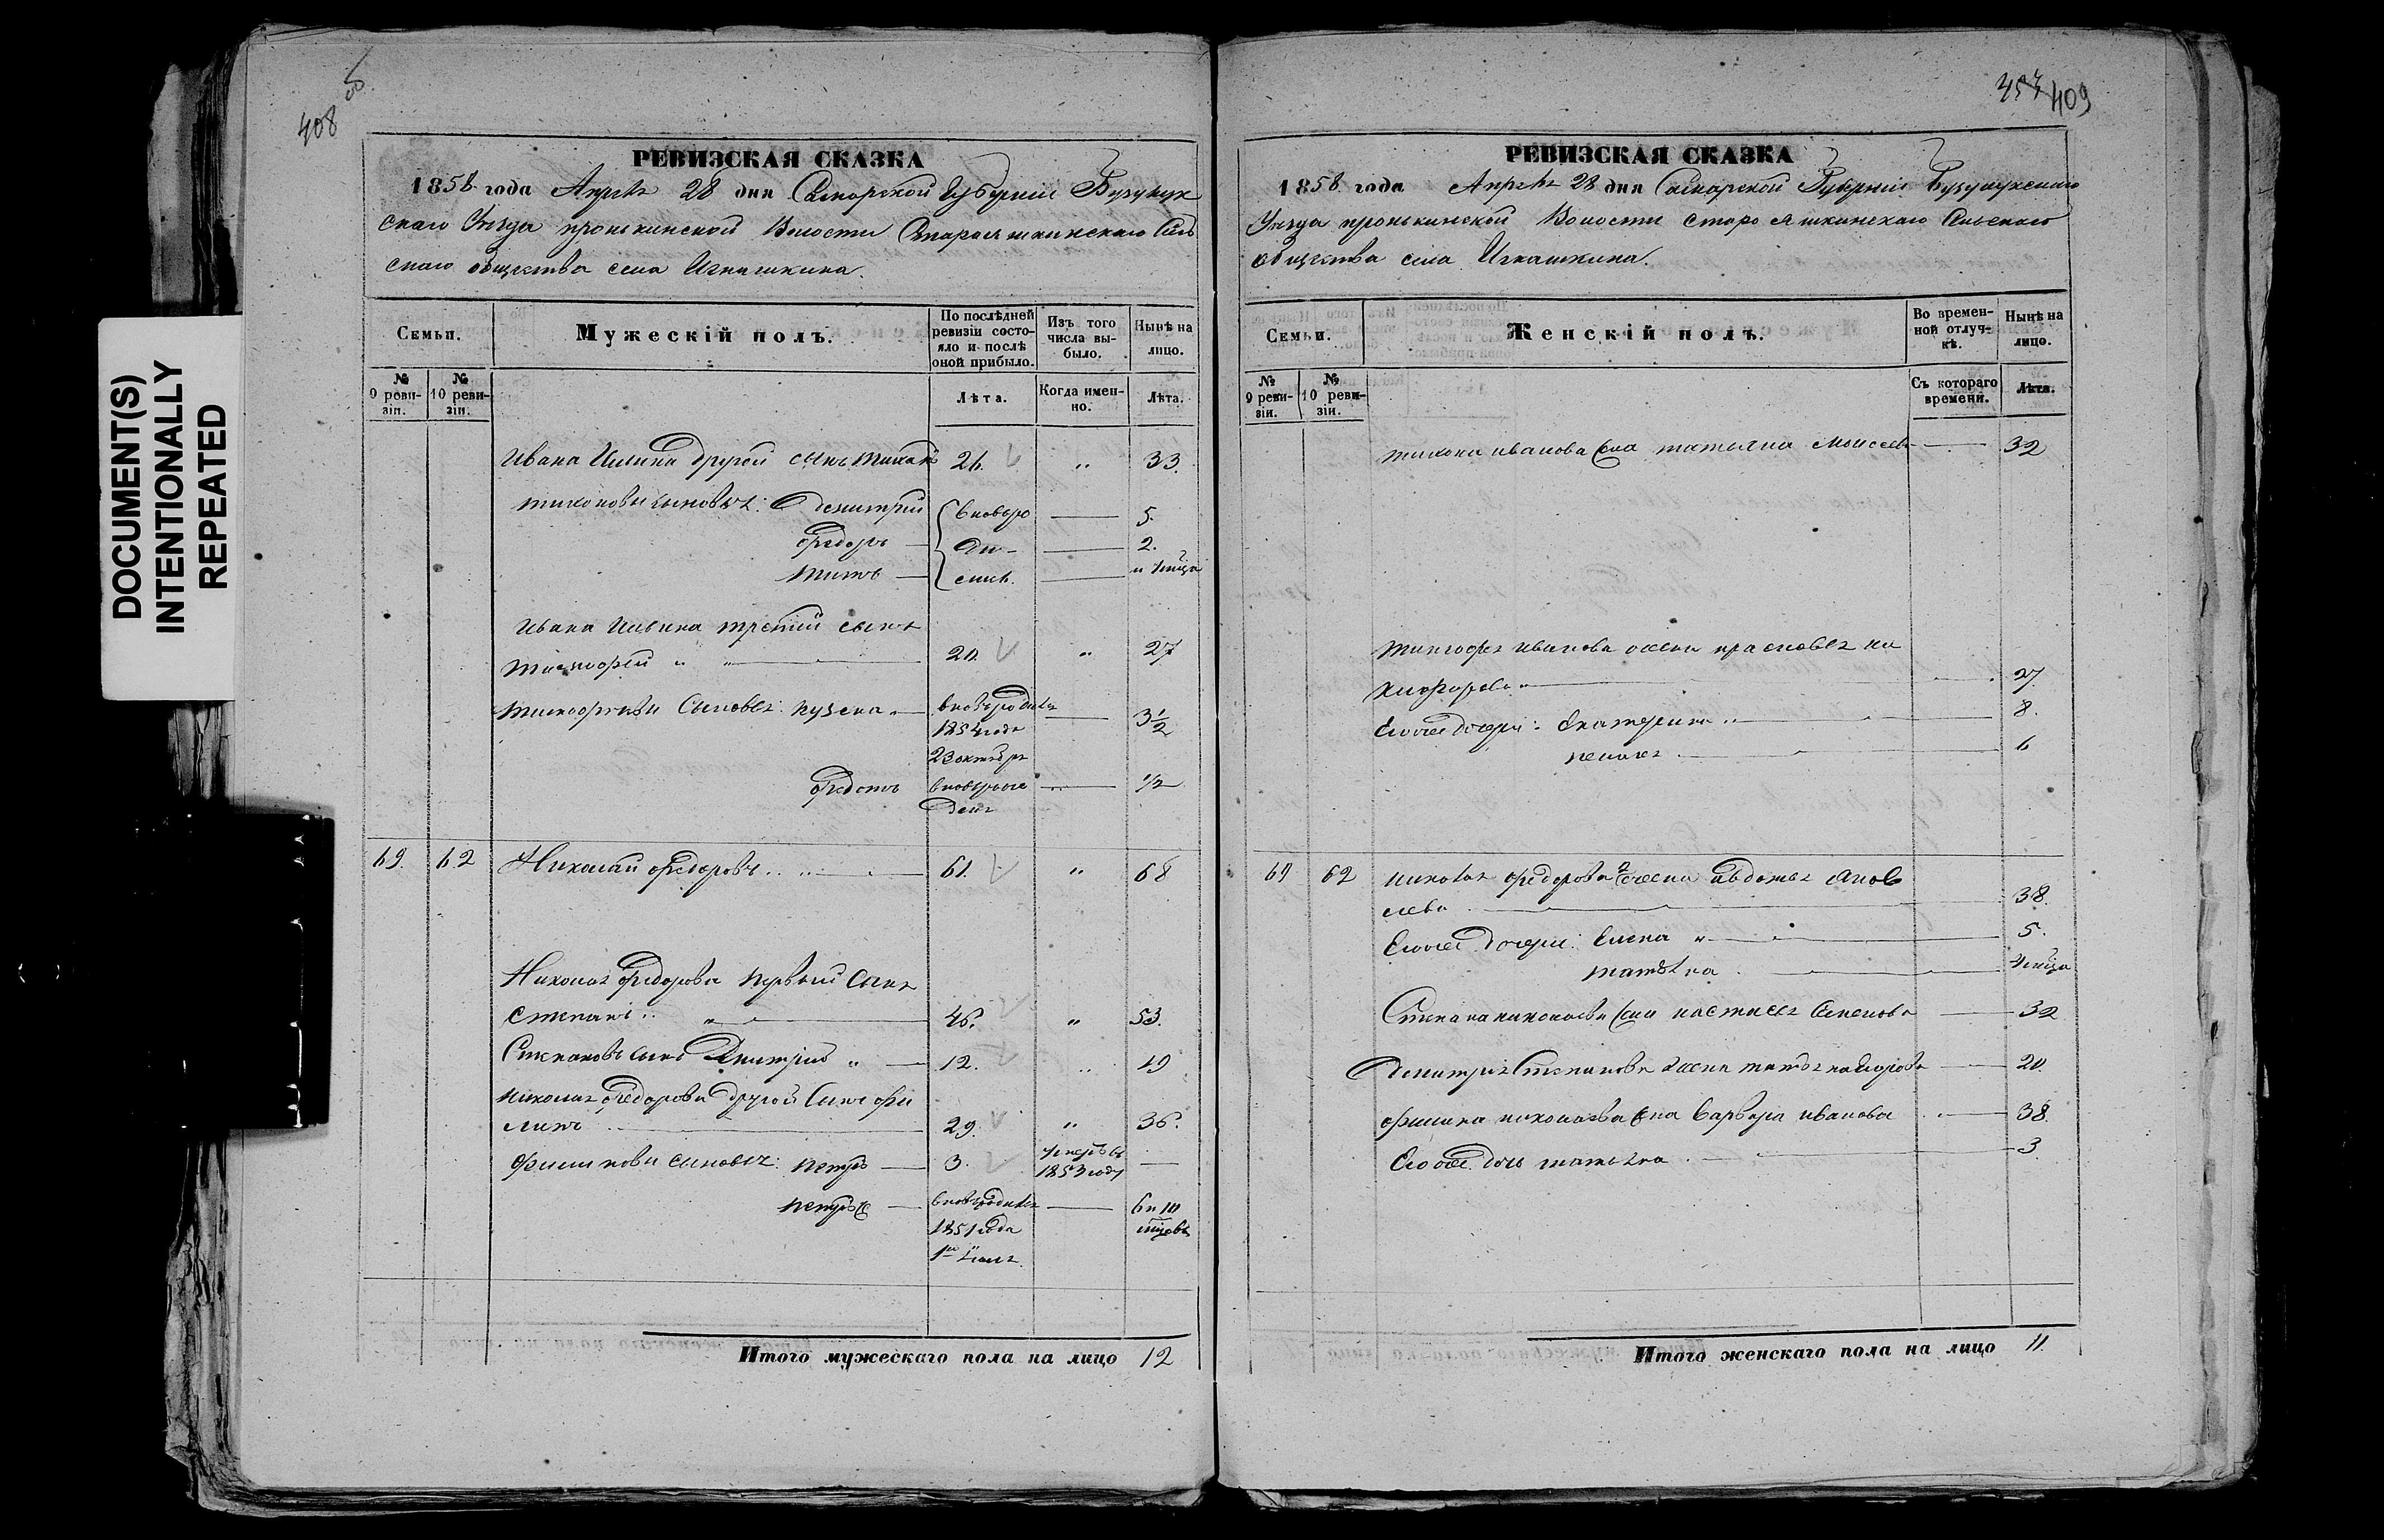 DOCUMENT(S)
INTENTIONALLY
REPEATED
408 об.
РЕВИЗСКАЯ СКАЗКА
1858 года Апреля 28 дня Самарской Губернии Бузулук
скаго Уезда пронькинской Волости Старояшкинскаго Сель
скаго общества села Игнашкина.
Семьи.
Мужескій полъ.
По послѣдней ревизіи состо-яло и послѣ оной прибыло.
Изъ того числа вы-было.
Нынѣ на лицо.
№ 9 реви-зіи.
№ 10 реви-зіи.
Лѣта.
Когда имен-но.
Лѣта.
Ивана Ильина другой сынъ тихонъ 26 " 33.
тихоновы сыновья: Демитрий вновъро 5.
федоръ ди- 2.
титъ лись. 4 мѣца
Ивана Ильина третий сынъ
тимофей " 20. " 27
тимофеевы Сыновья: кузема вновьродился 3½
1854 года
23 октября
федотъ вновьрож ½
ден
69. 62 Николай федоровъ 61. " 68
Николая федорова первый сынъ
Степанъ " 46. " 53.
Степановъ сынъ Дмитрий " 12. " 19
николая федорова другой Сынъ фи
липъ 29. " 36.
филиповы сыновья: петръ 3. умеръ въ
1853 году
петръ вновьродился 6 и 10
1851 года мцовъ
1го Июля
Итого мужескаго пола на лицо 12
457 409
РЕВИЗСКАЯ СКАЗКА
1858 года Апреля 28 дня Самарской Губернии Бузулукскаго
Уезда пронькинской Волости старояшкинскаго Сельскаго
общества села Игнашкина.
Семьи.
Женскій полъ.
Во времен-ной отлуч-кѣ.
Нынѣ на лицо.
№ 9 реви-зіи.
№ 10 реви-зіи.
Съ котораго времени.
Лѣта.
тихона иванова жена татьяна Моисеева 32
тимофея иванова жена прасковья ни
кифорова 27.
Егоже дочери: Екатерина 8.
пелагея 6
69 62 николая федорова 2 жена авдотья яков
лева 38.
Егоже Дочери: Елена " 5.
татьяна 4 мѣца
Степана николаева жена настасья Семенова 32
Демитрия Степанова жена татьяна Егорова 20.
филипа николаева жена варвара иванова 38.
Егоже дочь татьяна 3.
Итого женскаго пола на лицо 11.